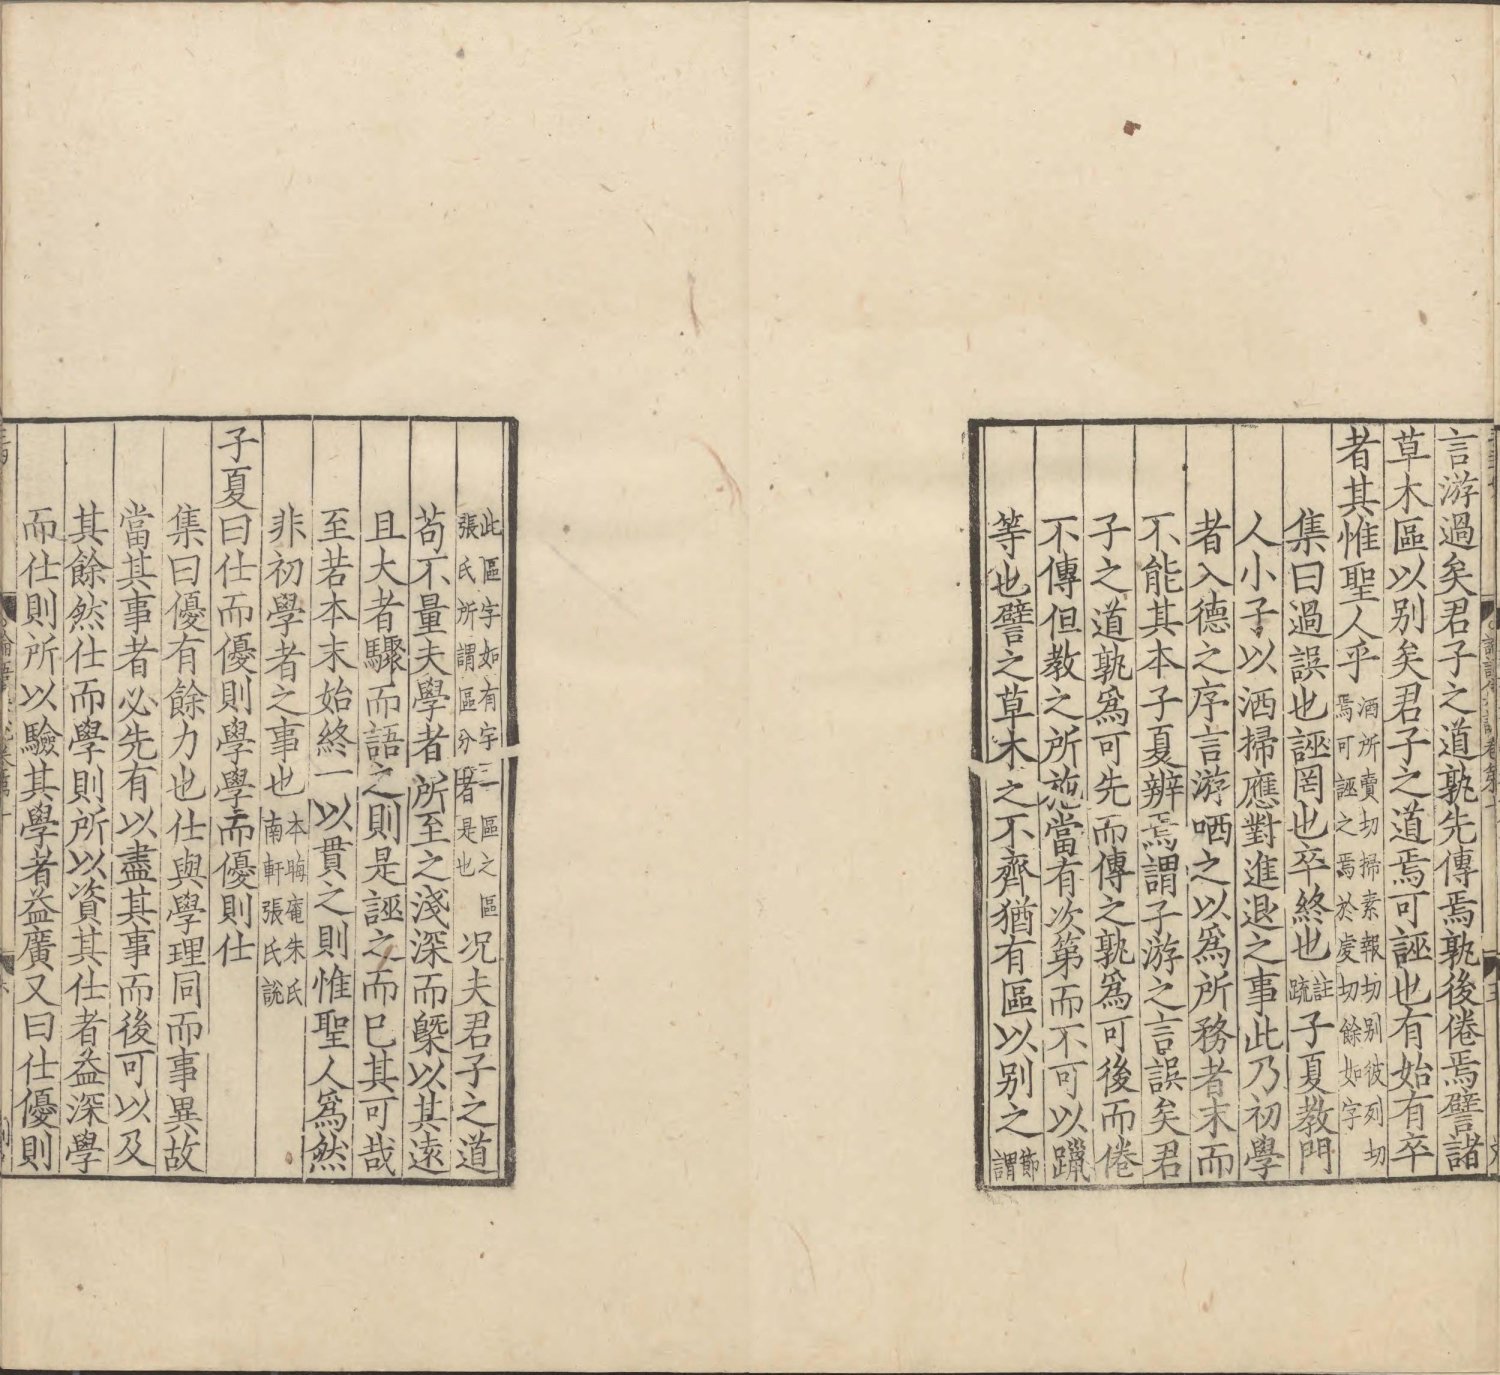 言游過矣君子之道孰先傳焉孰後倦焉譬諸
草木區以别矣君子之道焉可誣也有始有卒
者其惟聖人乎
洒所賣切掃素報切别彼列切
焉可誣之焉於虔切餘如字
集曰過誤也誣罔也卒終也
註
疏
子夏教門
人小子以洒掃應對進退之事此乃初學
者入德之序言游哂之以爲所務者末而
不能其本子夏辨焉謂子游之言誤矣君
子之道孰爲可先而傳之孰爲可後而倦
不傳但教之所施當有次第而不可以躐
等也譬之草木之不齊猶有區以别之
節
謂
此區字如有字二區之區
張氏所謂區分者是也
况夫君子之道
苟不量夫學者所至之淺深而槩以其遠
且大者驟而語之則是誣之而已其可哉
至若本末始終一以貫之則惟聖人爲然
非初學者之事也
本晦庵朱氏
南軒張氏說
子夏曰仕而優則學學而優則仕
集曰優有餘力也仕與學理同而事異故
當其事者必先有以盡其事而後可以及
其餘然仕而學則所以資其仕者益深學
而仕則所以驗其學者益廣又曰仕優則